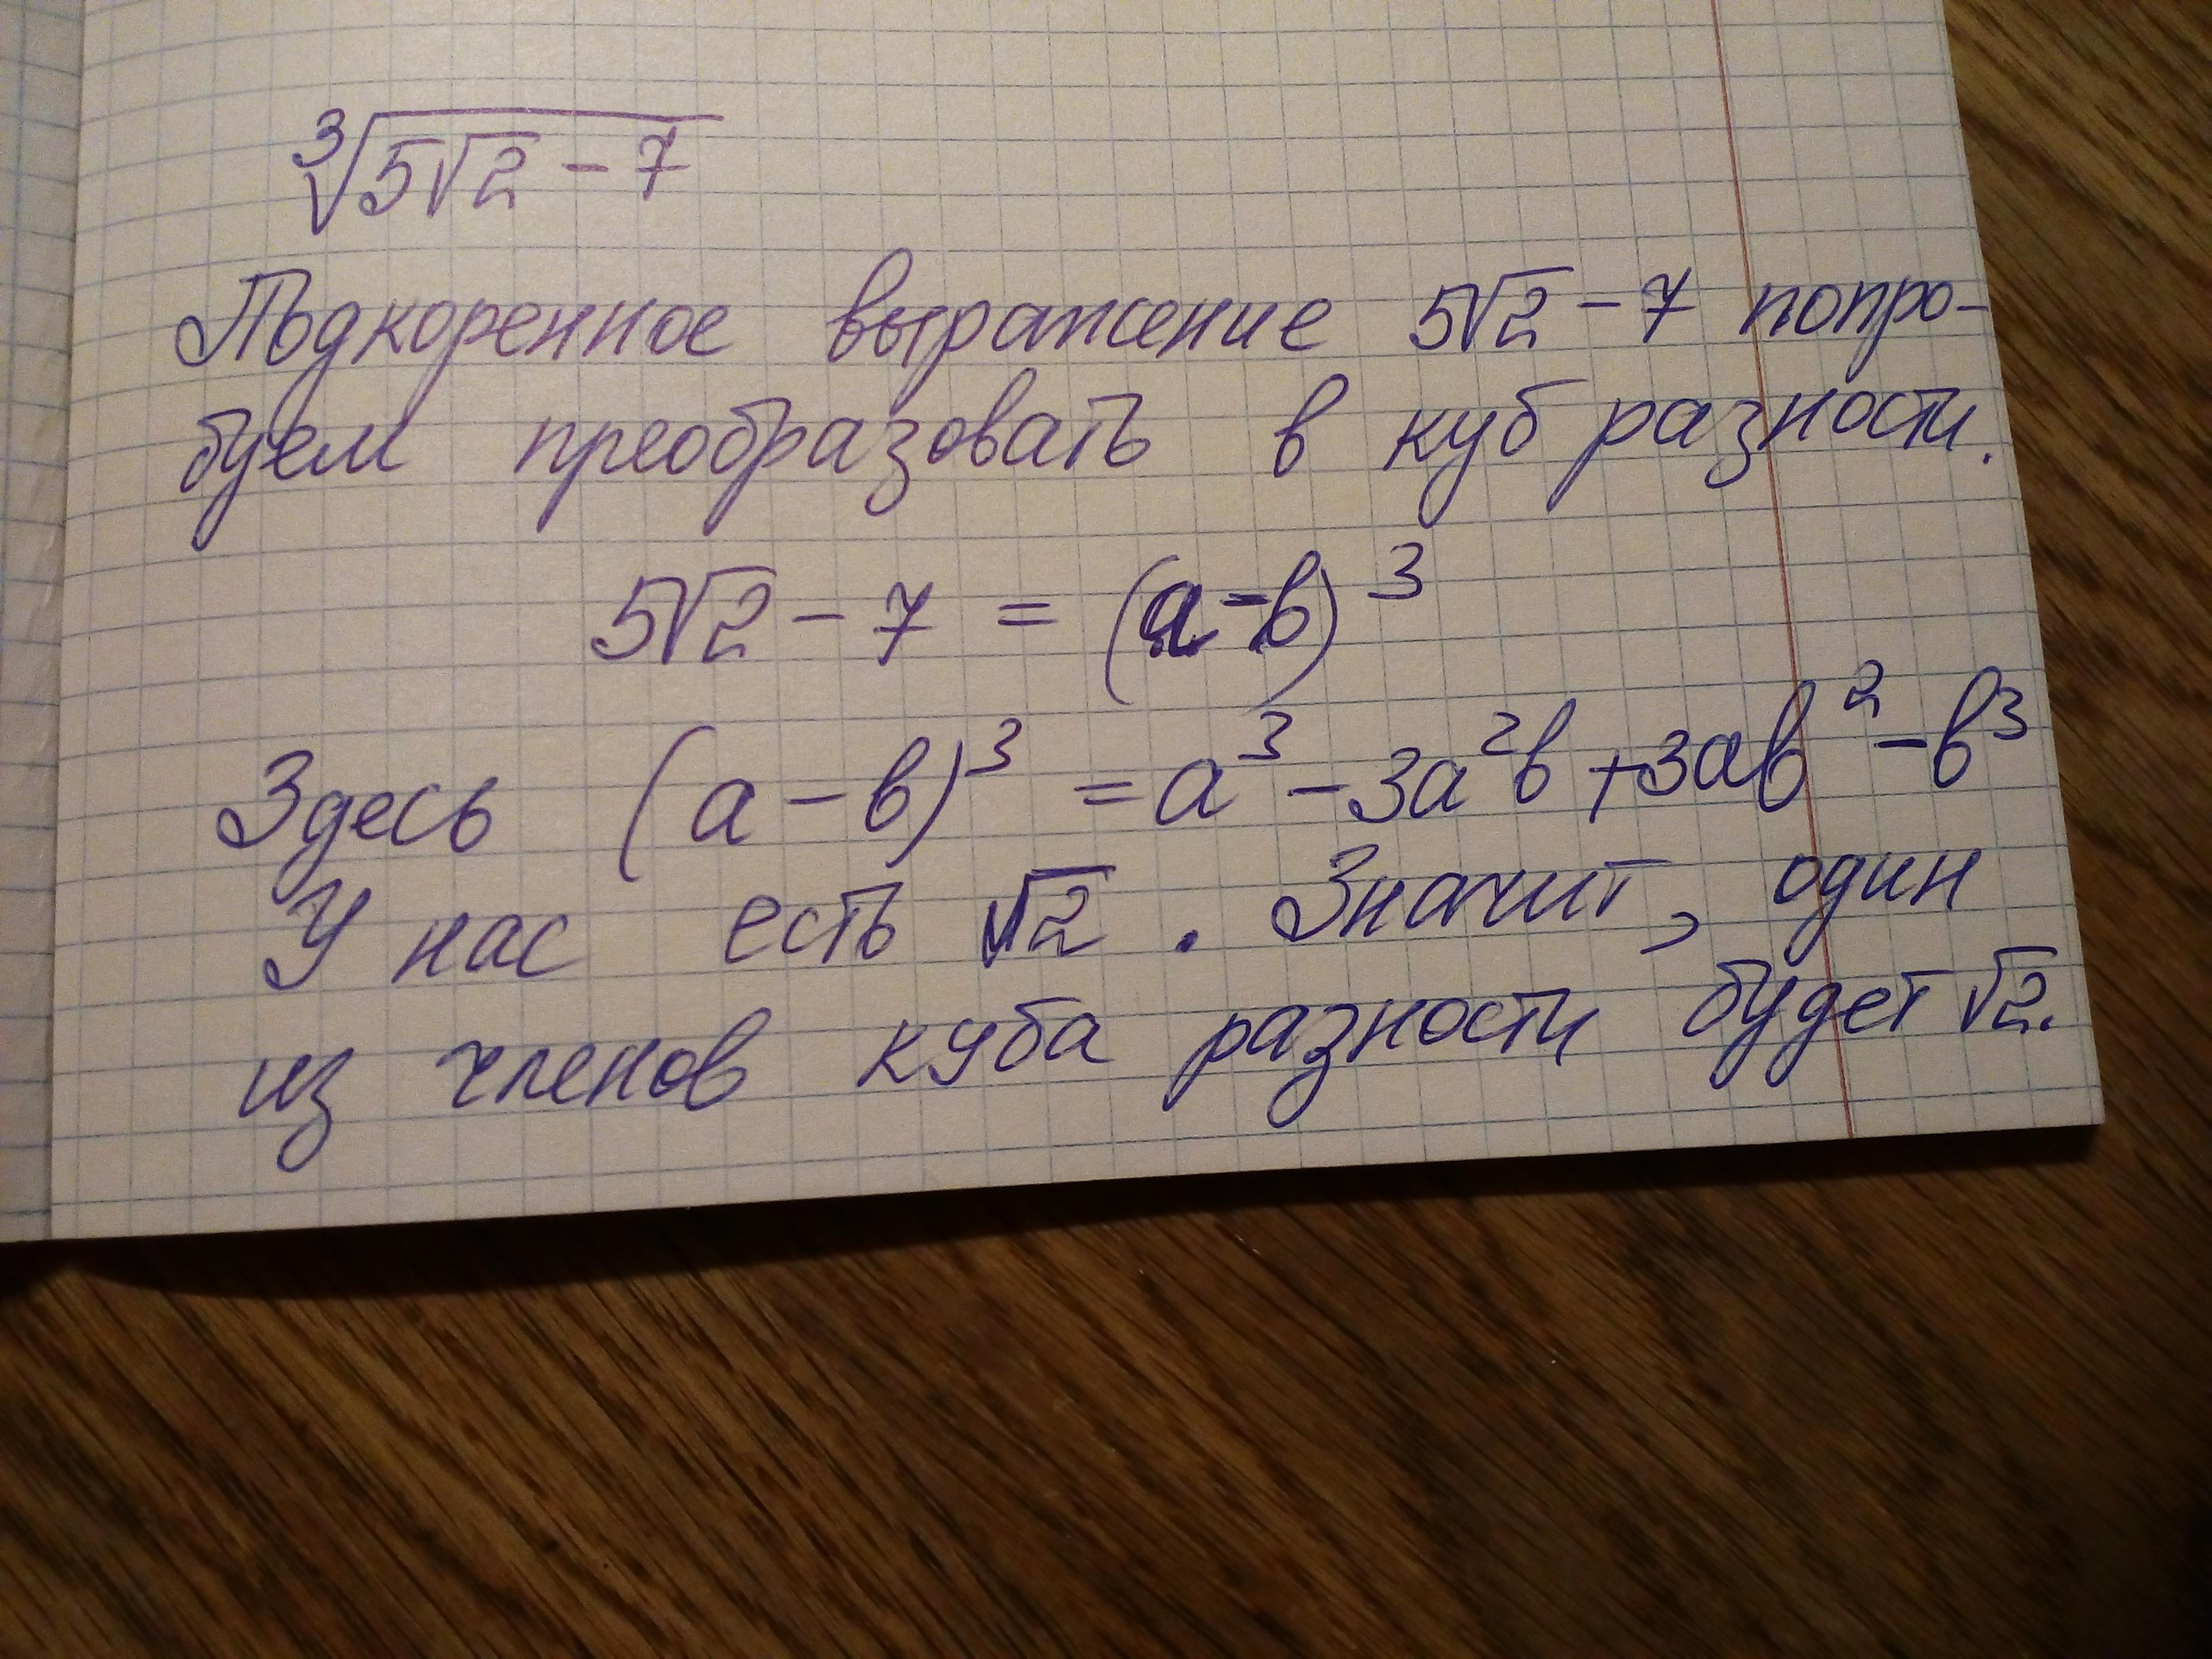 ∛(5√2 - 7)
Подкоренное выражение 5√2 - 7 попро-
буем преобразовать в куб разности.
5√2 - 7 = (a - b)³
Здесь (a - b)³ = a³ - 3a²b + 3ab² - b³
У нас есть √2. Значит, один
из членов куба разности будет √2.